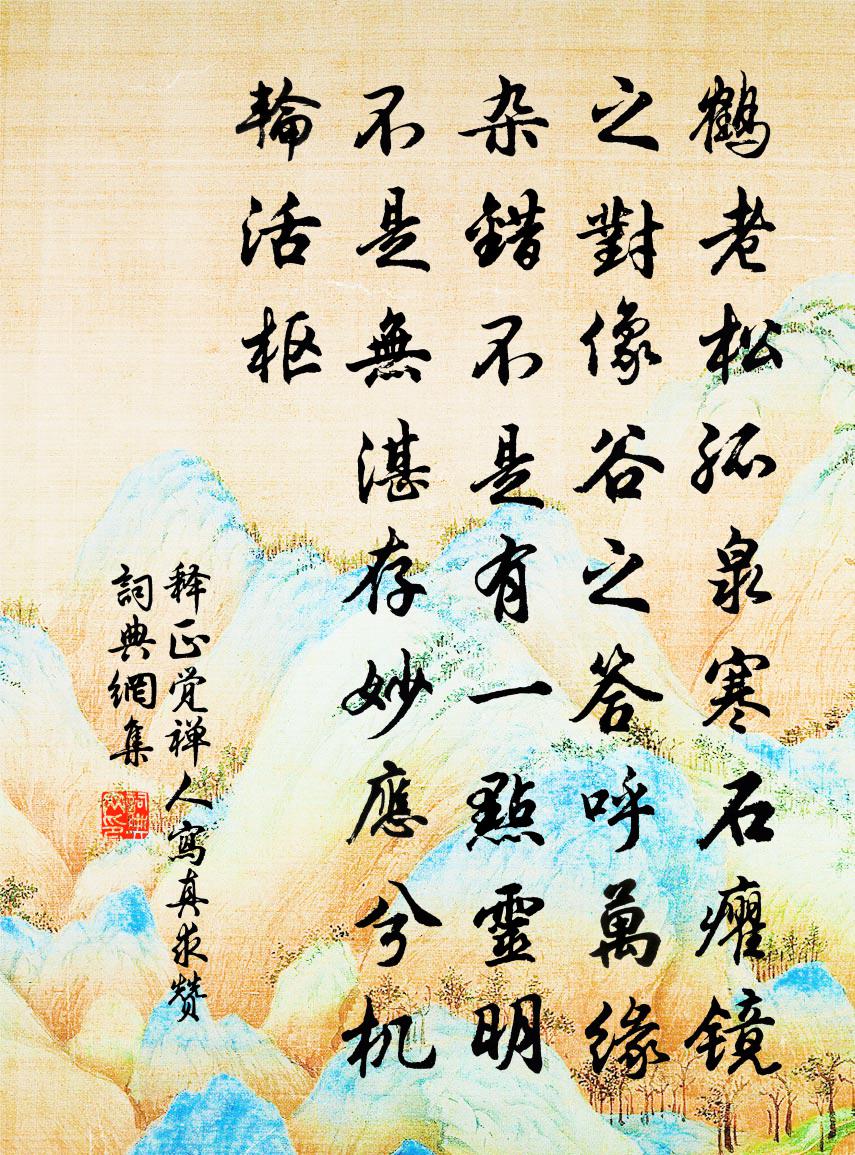 鶴老松孤泉寒石癯鏡
之對像谷之答呼萬緣
杂錯不是有一點靈明
不是無湛存妙應兮机
輪活枢
释正觉禅人寫真求赞
詞典網集